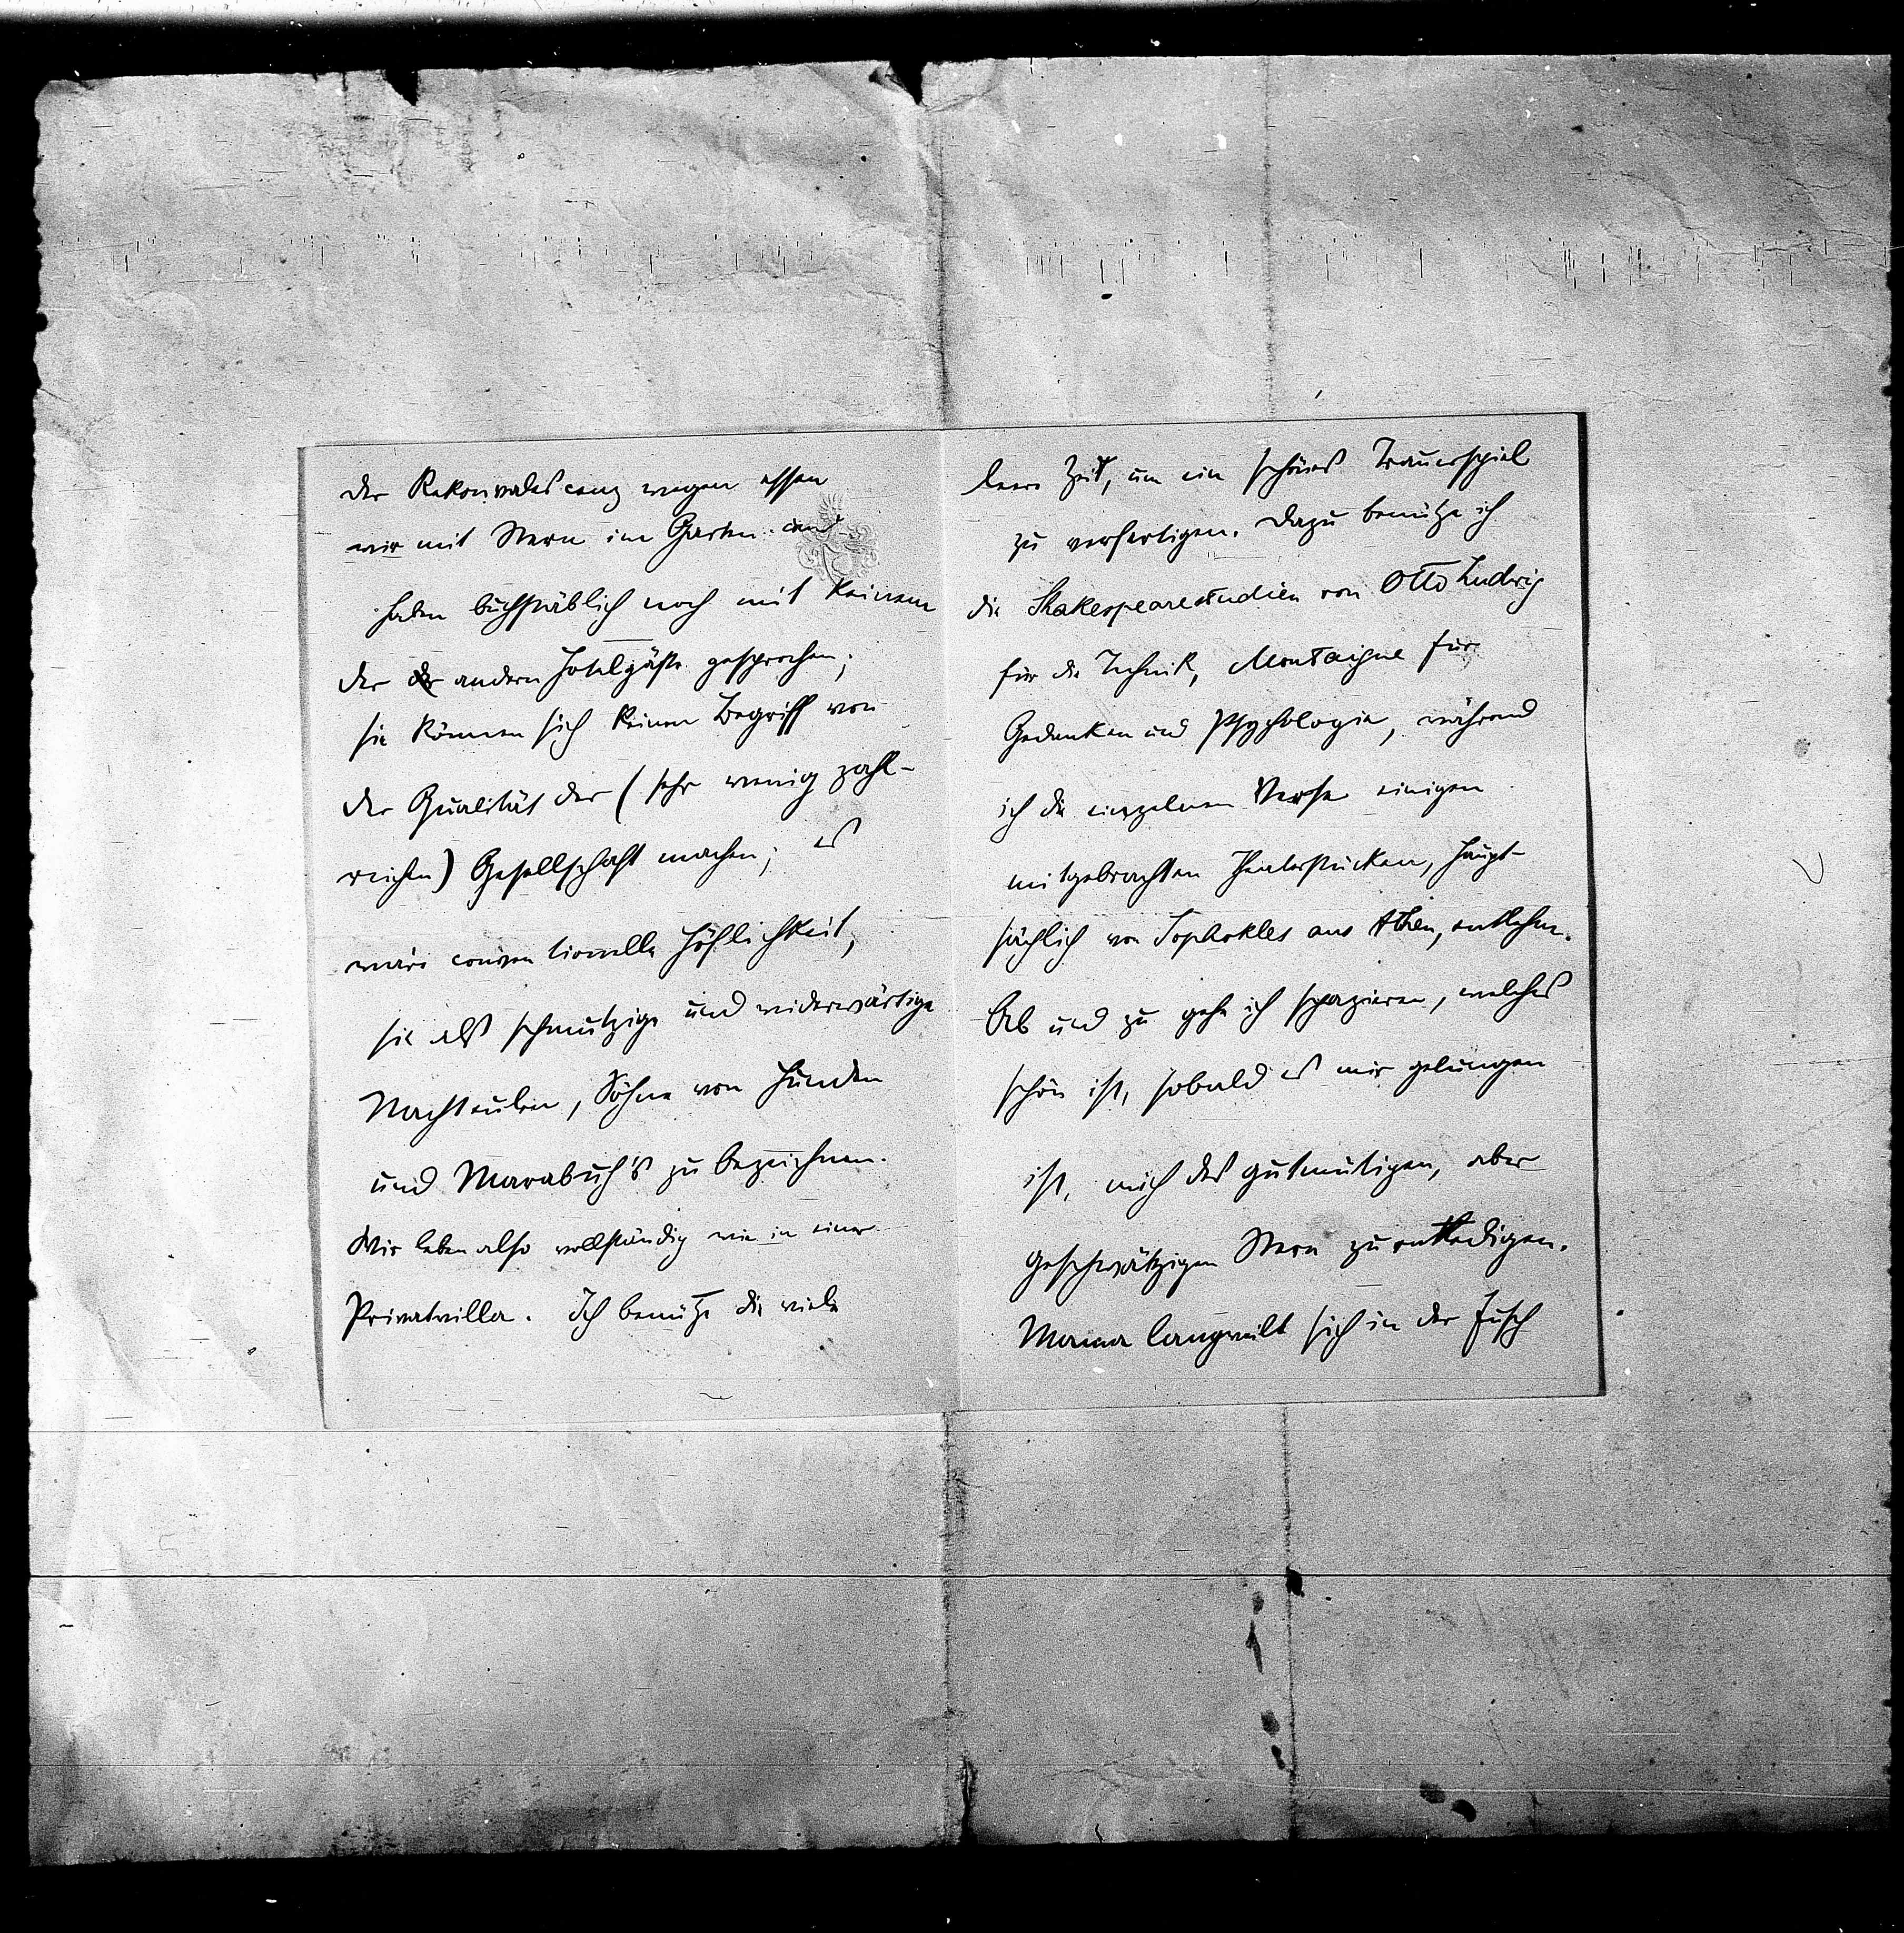 der Rekonvalescenz wegen essen
wir mit Stern im Garten und
haben buchstäblich noch mit keinem
der der andern Hotelgäste gesprochen;
sie können sich keinen Begriff von
der Qualität der (sehr wenig zahl-
reichen) Gesellschaft machen; es
wäre conventionelle Höflichkeit,
sie als schmutzige und widerwärtige
Nachteulen, Söhne von Hunden
und Marabuh's zu bezeichnen.
Wir leben also vollständig wie in einer
Privatvilla. Ich benütze die viele
leere Zeit, um ein schönes Trauerspiel
zu verfertigen. Dazu benütze ich
die Shakespearestudien von Otto Ludwig
für die Technik, Montaigne für
Gedanken und Psychologie, während
ich die einzelnen Verse einigen
mitgebrachten Theaterstücken, haupt-
sächlich von Sophokles aus Athen, entlehne.
Ab und zu gehe ich spazieren, welches
schön ist, sobald es mir gelungen
ist, mich des gutmütigen, aber
geschwätzigen Stern zu entledigen.
Mama langweilt sich in der Fusch